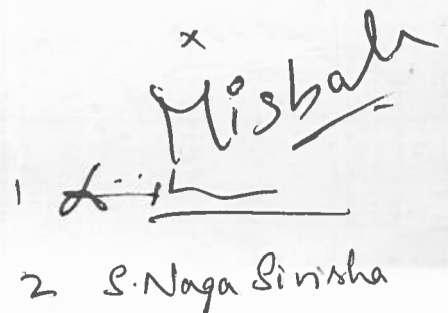 x
Misbah
1
2 S. Naga Sirisha